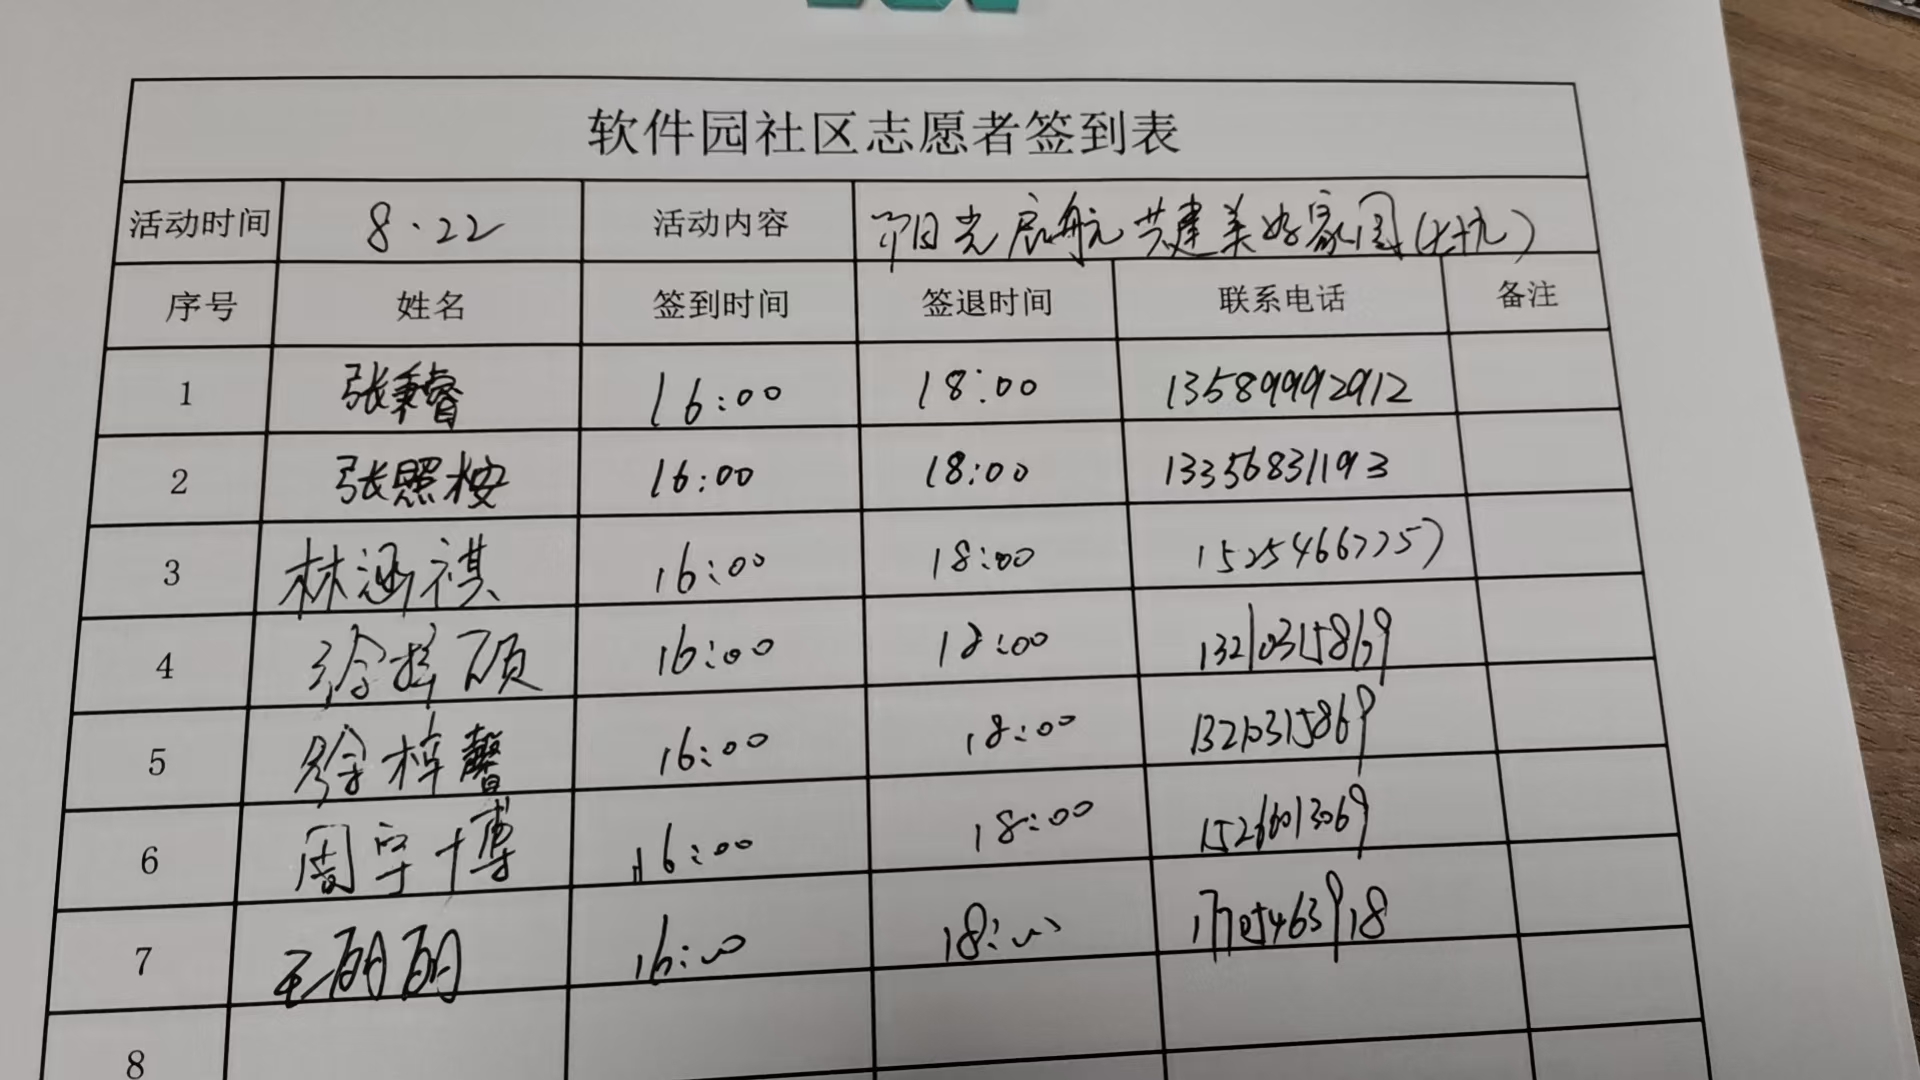 软件园社区志愿者签到表
活动时间 8.22 活动内容 阳光启航 共建美好家园(七十九)
序号 姓名 签到时间 签退时间 联系电话 备注
1 张秉睿 16:00 18:00 13589992912
2 张照桉 16:00 18:00 13356831193
3 林涵祺 16:00 18:00 15254667757
4 徐 硕 16:00 18:00 13210315869
5 徐梓馨 16:00 18:00 13210315869
6 周宇博 16:00 18:00 15266013069
7 王 16:00 18:00
8